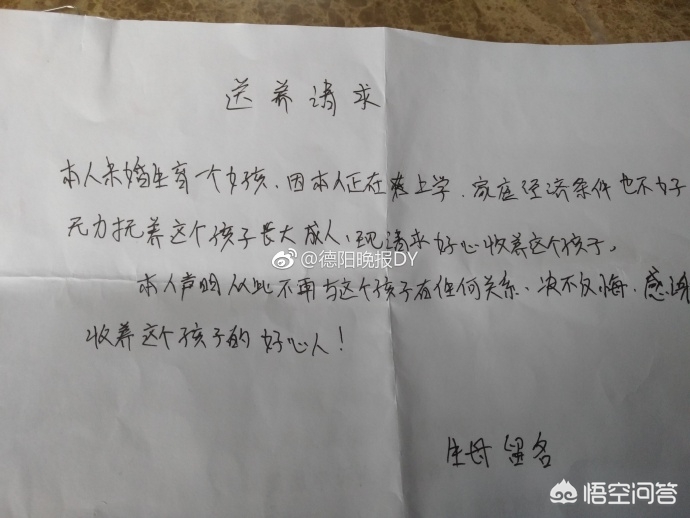 送养请求
本人未婚生育一个女孩、因本人正在上学、家庭经济条件也不好
无力抚养这个孩子长大成人、现请求好心收养这个孩子,
@德阳晚报DY
本人声明从此不再与这个孩子有任何关系、决不反悔、感谢
收养这个孩子的好心人!
生母留名
悟空问答